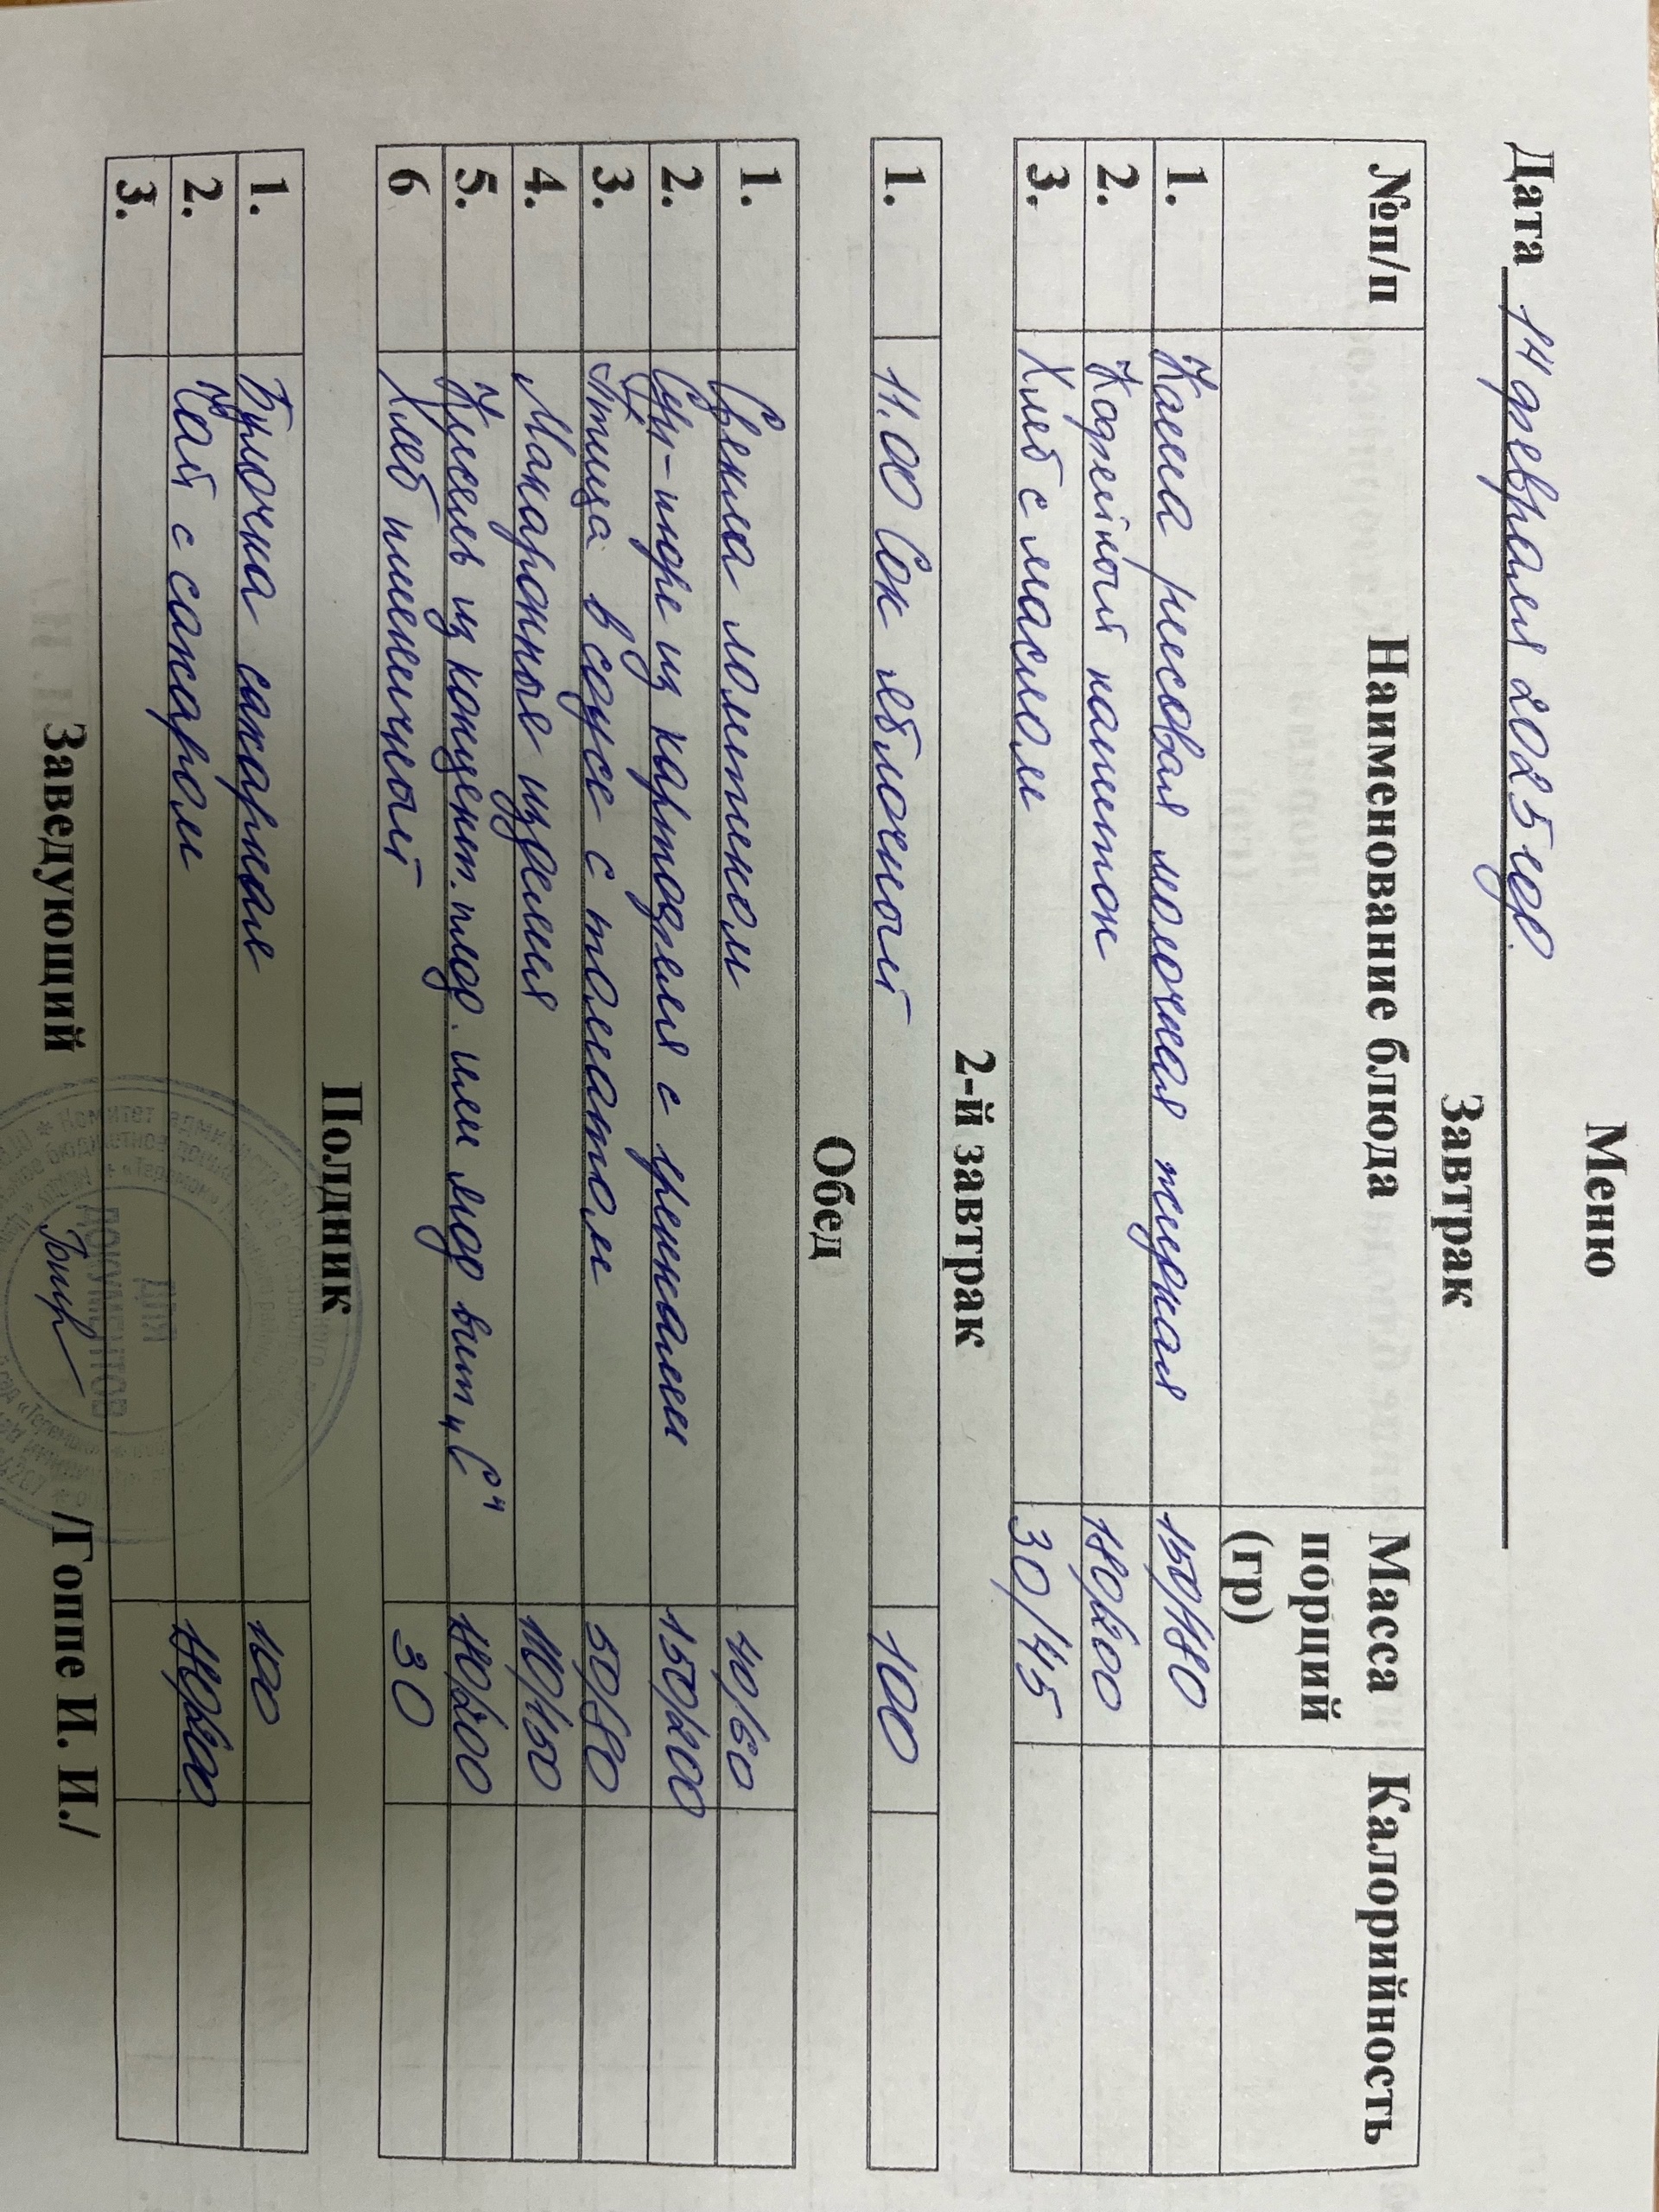 Меню
Дата 14 февраля 2025 год.
Завтрак
№п/п Наименование блюда Масса порций (гр) Калорийность
1. Каша рисовая молочная жидкая 150/180
2. Кофейный напиток 180/200
3. Хлеб с маслом 30/45
2-й завтрак
1. 11.00 Сок яблочный 100
Обед
1. Свекла ломтиком 40/60
2. Суп-пюре из картофеля с гренками 150/200
3. Птица в соусе с томатом 50/80
4. Макаронные изделия 110/150
5. Кисель из концент. плод. или ягод вит „С" 180/200
6 Хлеб пшеничный 30
Полдник
1. Булочка сахарная 100
2. Чай с сахаром 180/200
3.
Заведующий /Гоппе И. И./
ДЛЯ
ДОКУМЕНТОВ